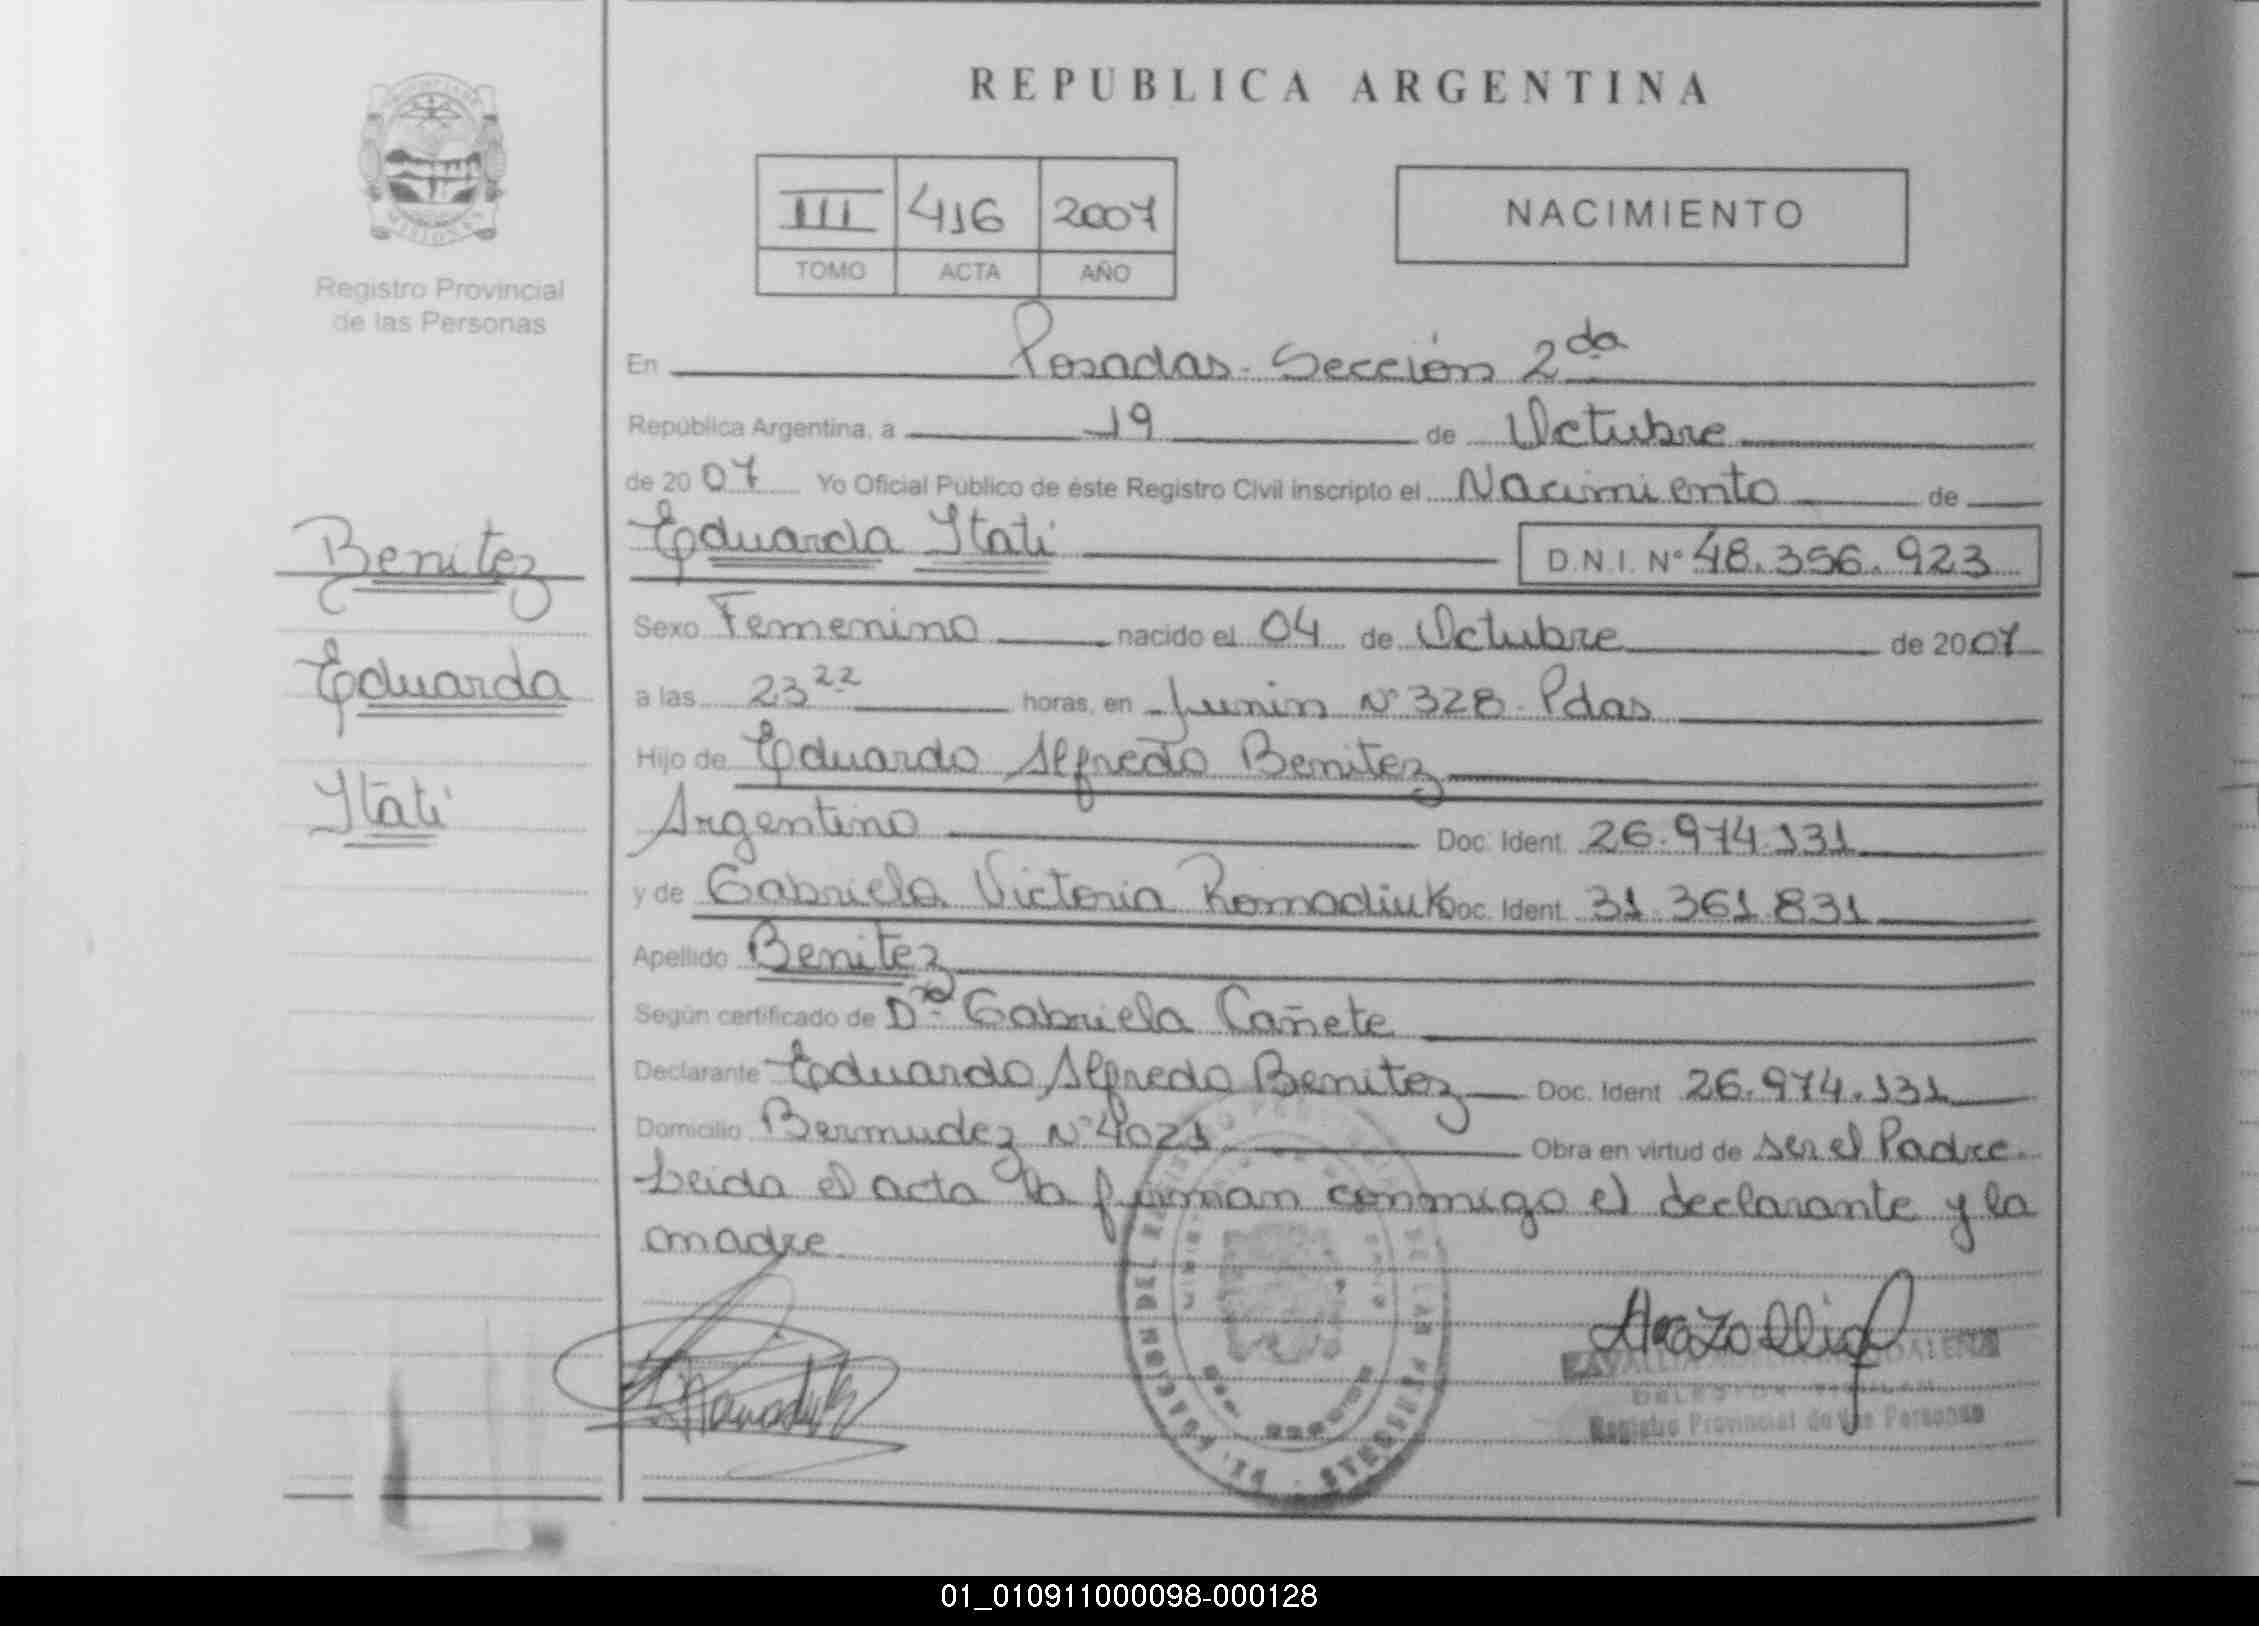 REPUBLICA ARGENTINA
III 416 2007
TOMO ACTA AÑO
NACIMIENTO
Registro Provincial
de las Personas
En Posadas - Sección 2da
República Argentina, a 19 de Octubre
de 2007 Yo Oficial Público de éste Registro Civil inscripto el Nacimiento de
Eduarda Itati D.N.I. Nº 48.356.923
Benitez
Eduarda
Itati
Sexo Femenino nacido el 04 de Octubre de 2007
a las 23 22 horas, en Junin Nº 328 - Pdas
Hijo de Eduardo Alfredo Benitez
Argentino Doc. Ident. 26.974.131
y de Gabriela Victoria Romadiuk Doc. Ident. 31.361.831
Apellido Benitez
Según certificado de Dra Gabriela Cañete
Declarante Eduardo Alfredo Benitez Doc. Ident 26.974.131
Domicilio Bermudez Nº 4021 Obra en virtud de ser el Padre.
Leida el acta la firman conmigo el declarante y la
madre
Registro Provincial de las Personas
01_010911000098-000128